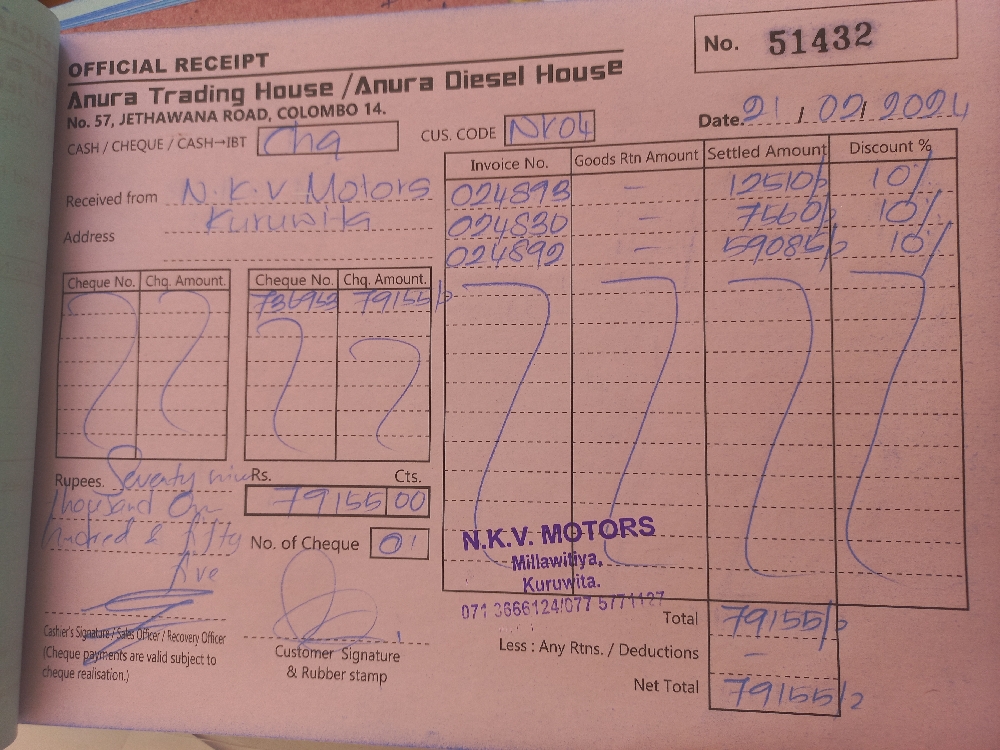 OFFICIAL RECEIPT
No. 51432
Anura Trading House /Anura Diesel House
No. 57, JETHAWANA ROAD, COLOMBO 14.
Date. 21 / 02 / 2024
CASH / CHEQUE / CASH→IBT Chq
CUS. CODE NK04
Received from N.K.V Motors
Address Kuruwita
Invoice No. Goods Rtn Amount Settled Amount Discount %
024893 – 12510/= 10%
024830 – 7560/= 10%
024892 – 59085/= 10%
Cheque No. Chq. Amount. Cheque No. Chq. Amount.
79155/=
Rupees. Seventy nine
Thousand One
hundred & fifty
five
Rs. Cts.
79155 00
No. of Cheque 01
N.K.V. MOTORS
Millawitiya,
Kuruwita.
071 3666124/077 5771127
Cashier's Signature / Sales Officer / Recovery Officer
(Cheque payments are valid subject to
cheque realisation.)
Customer Signature
& Rubber stamp
Total 79155/=
Less : Any Rtns. / Deductions –
Net Total 79155/=